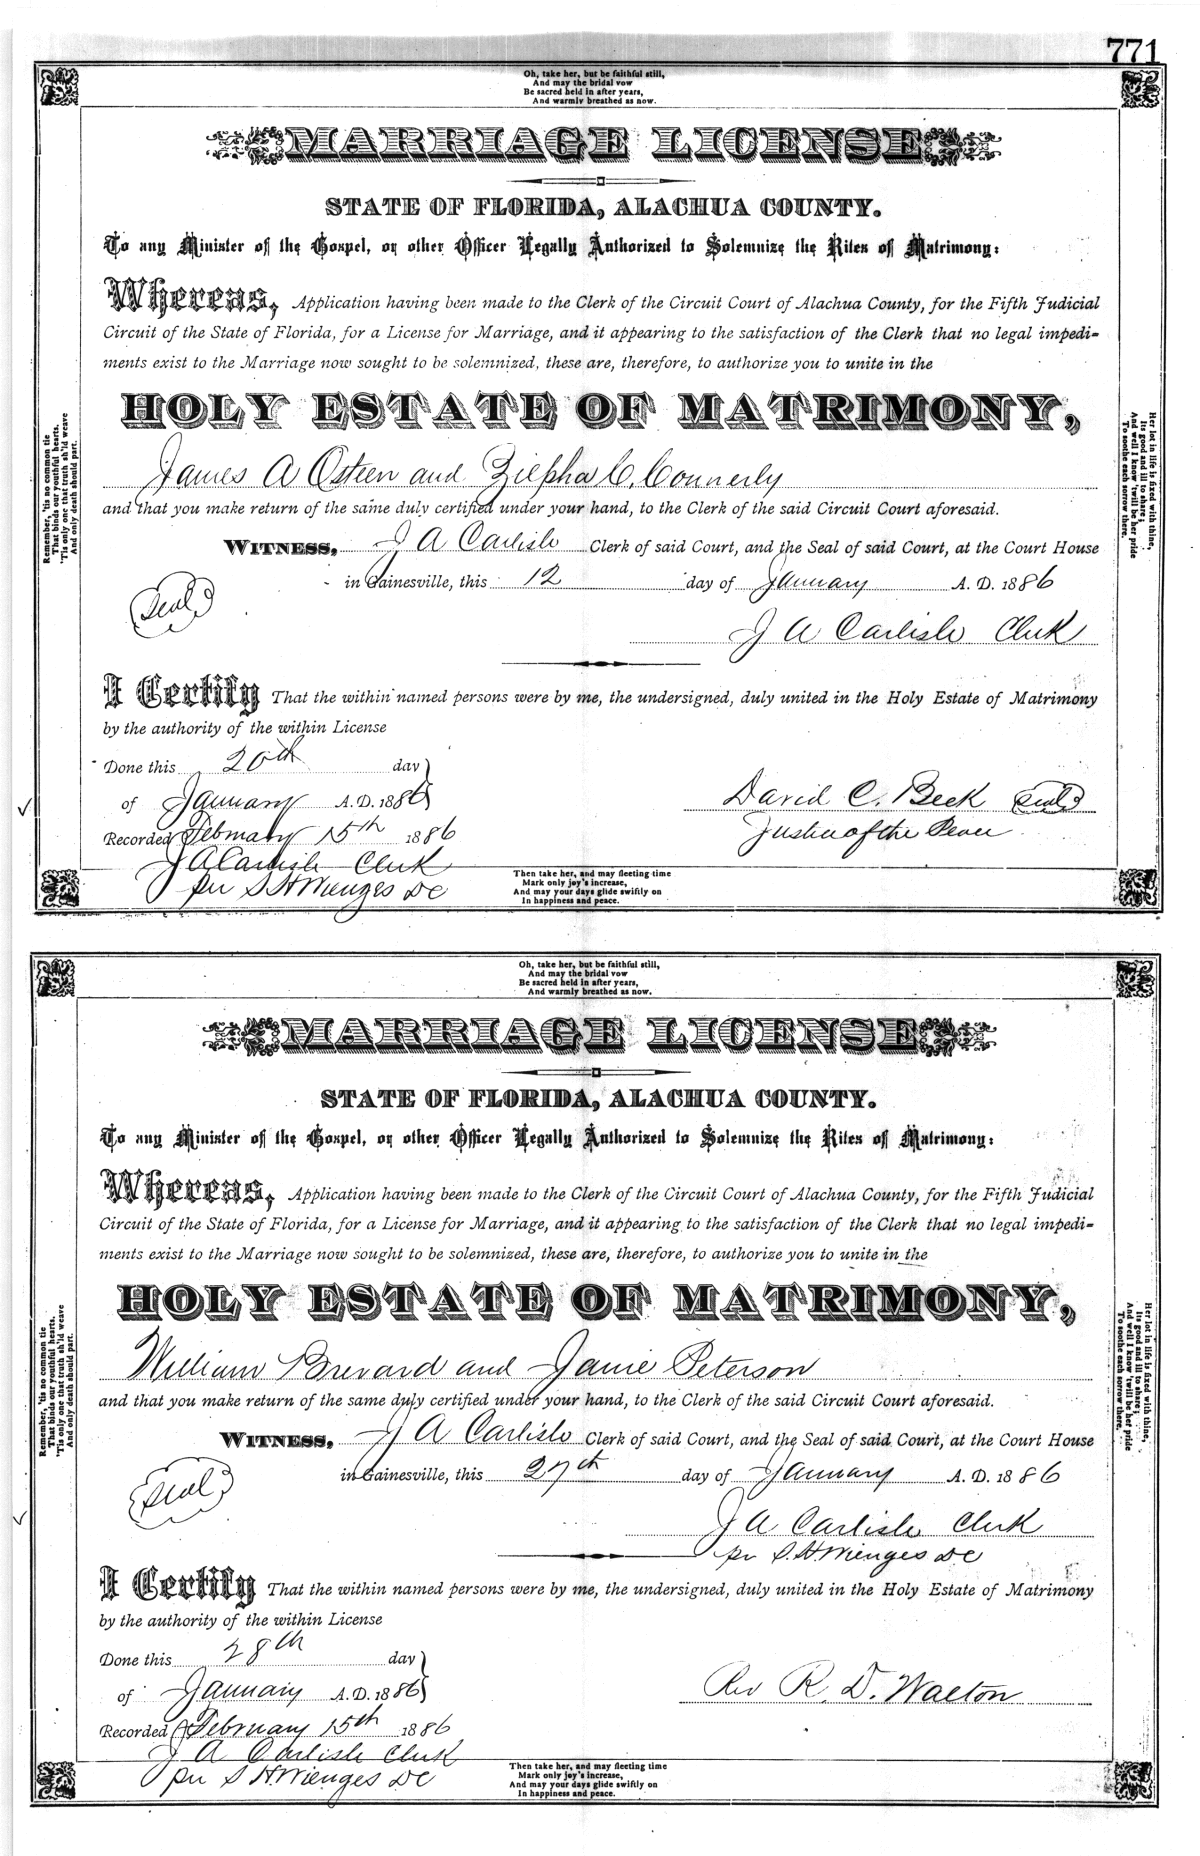 771
Oh, take her, but be faithful still,
And may the bridal vow
Be sacred held in after years,
And warmly breathed as now.
MARRIAGE LICENSE
STATE OF FLORIDA, ALACHUA COUNTY.
To any Minister of the Gospel, or other Officer Legally Authorized to Solemnize the Rites of Matrimony:
Whereas, Application having been made to the Clerk of the Circuit Court of Alachua County, for the Fifth Judicial
Circuit of the State of Florida, for a License for Marriage, and it appearing to the satisfaction of the Clerk that no legal impedi-
ments exist to the Marriage now sought to be solemnized, these are, therefore, to authorize you to unite in the
HOLY ESTATE OF MATRIMONY,
James A Osteen and Zilpha C. Connerly
and that you make return of the same duly certified under your hand, to the Clerk of the said Circuit Court aforesaid.
WITNESS, J A Carlisle Clerk of said Court, and the Seal of said Court, at the Court House
in Gainesville, this 12 day of January A. D. 1886
Seal
J A Carlisle Clerk
I Certify That the within named persons were by me, the undersigned, duly united in the Holy Estate of Matrimony
by the authority of the within License
Done this 20th day
of January A. D. 1886
David C. Beck Seal
Recorded February 15th 1886
Justice of the Peace
J A Carlisle Clerk
per S H Wienges DC
Then take her, and may fleeting time
Mark only joy's increase,
And may your days glide swiftly on
In happiness and peace.
Remember, 'tis no common tie
That binds our youthful hearts,
'Tis only one that truth sh'ld weave
And only death should part.
Her lot in life is fixed with thine,
Its good and ill to share;
And well I know 'twill be her pride
To soothe each sorrow there.
Oh, take her, but be faithful still,
And may the bridal vow
Be sacred held in after years,
And warmly breathed as now.
MARRIAGE LICENSE
STATE OF FLORIDA, ALACHUA COUNTY.
To any Minister of the Gospel, or other Officer Legally Authorized to Solemnize the Rites of Matrimony:
Whereas, Application having been made to the Clerk of the Circuit Court of Alachua County, for the Fifth Judicial
Circuit of the State of Florida, for a License for Marriage, and it appearing to the satisfaction of the Clerk that no legal impedi-
ments exist to the Marriage now sought to be solemnized, these are, therefore, to authorize you to unite in the
HOLY ESTATE OF MATRIMONY,
William Brevard and Janie Peterson
and that you make return of the same duly certified under your hand, to the Clerk of the said Circuit Court aforesaid.
WITNESS, J A Carlisle Clerk of said Court, and the Seal of said Court, at the Court House
in Gainesville, this 27th day of January A. D. 1886
Seal
J A Carlisle Clerk
per S. H Wienges DC
I Certify That the within named persons were by me, the undersigned, duly united in the Holy Estate of Matrimony
by the authority of the within License
Done this 28th day
of January A. D. 1886
Rev R. D. Walton
Recorded February 15th 1886
J A Carlisle Clerk
per S H Wienges DC
Then take her, and may fleeting time
Mark only joy's increase,
And may your days glide swiftly on
In happiness and peace.
Remember, 'tis no common tie
That binds our youthful hearts,
'Tis only one that truth sh'ld weave
And only death should part.
Her lot in life is fixed with thine,
Its good and ill to share;
And well I know 'twill be her pride
To soothe each sorrow there.